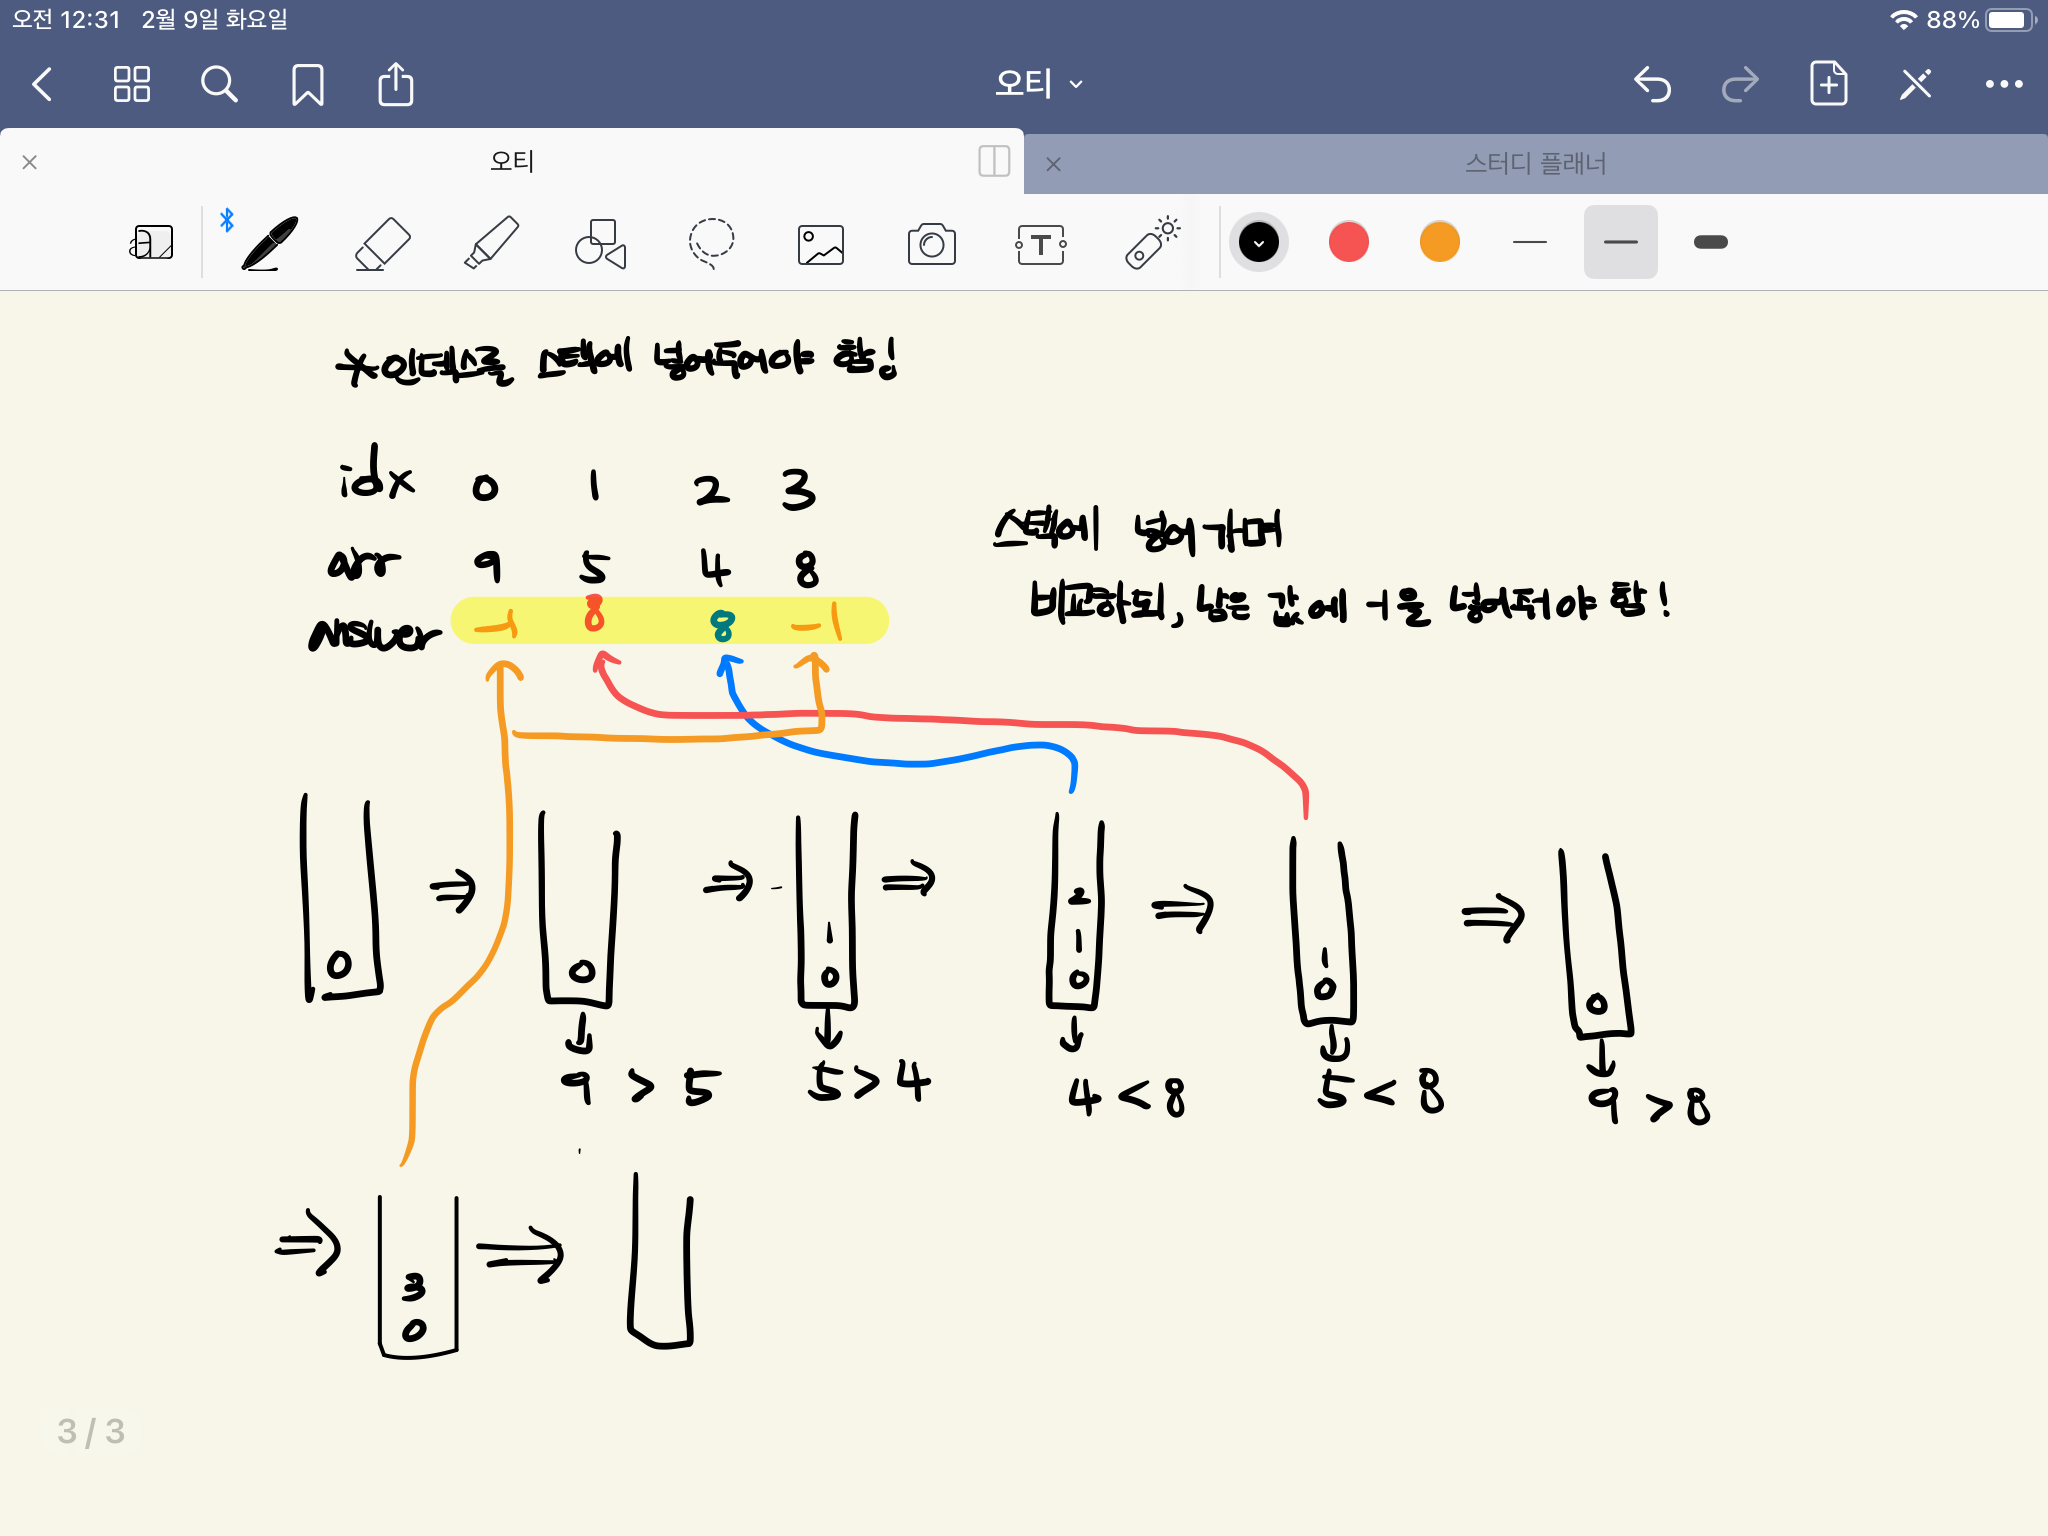 오전 12:31 2월 9일 화요일 88%
오티
오티 스터디 플래너
*인덱스를 스택에 넣어두어야 함!
idx 0 1 2 3
arr 9 5 4 8
answer -1 8 8 -1
스택에 넣어가며
비교하되, 남은 값에 -1을 넣어줘야 함!
0 0 1 0 2 1 0 1 0 0
9 > 5 5 > 4 4 < 8 5 < 8 9 > 8
3
0
3 / 3